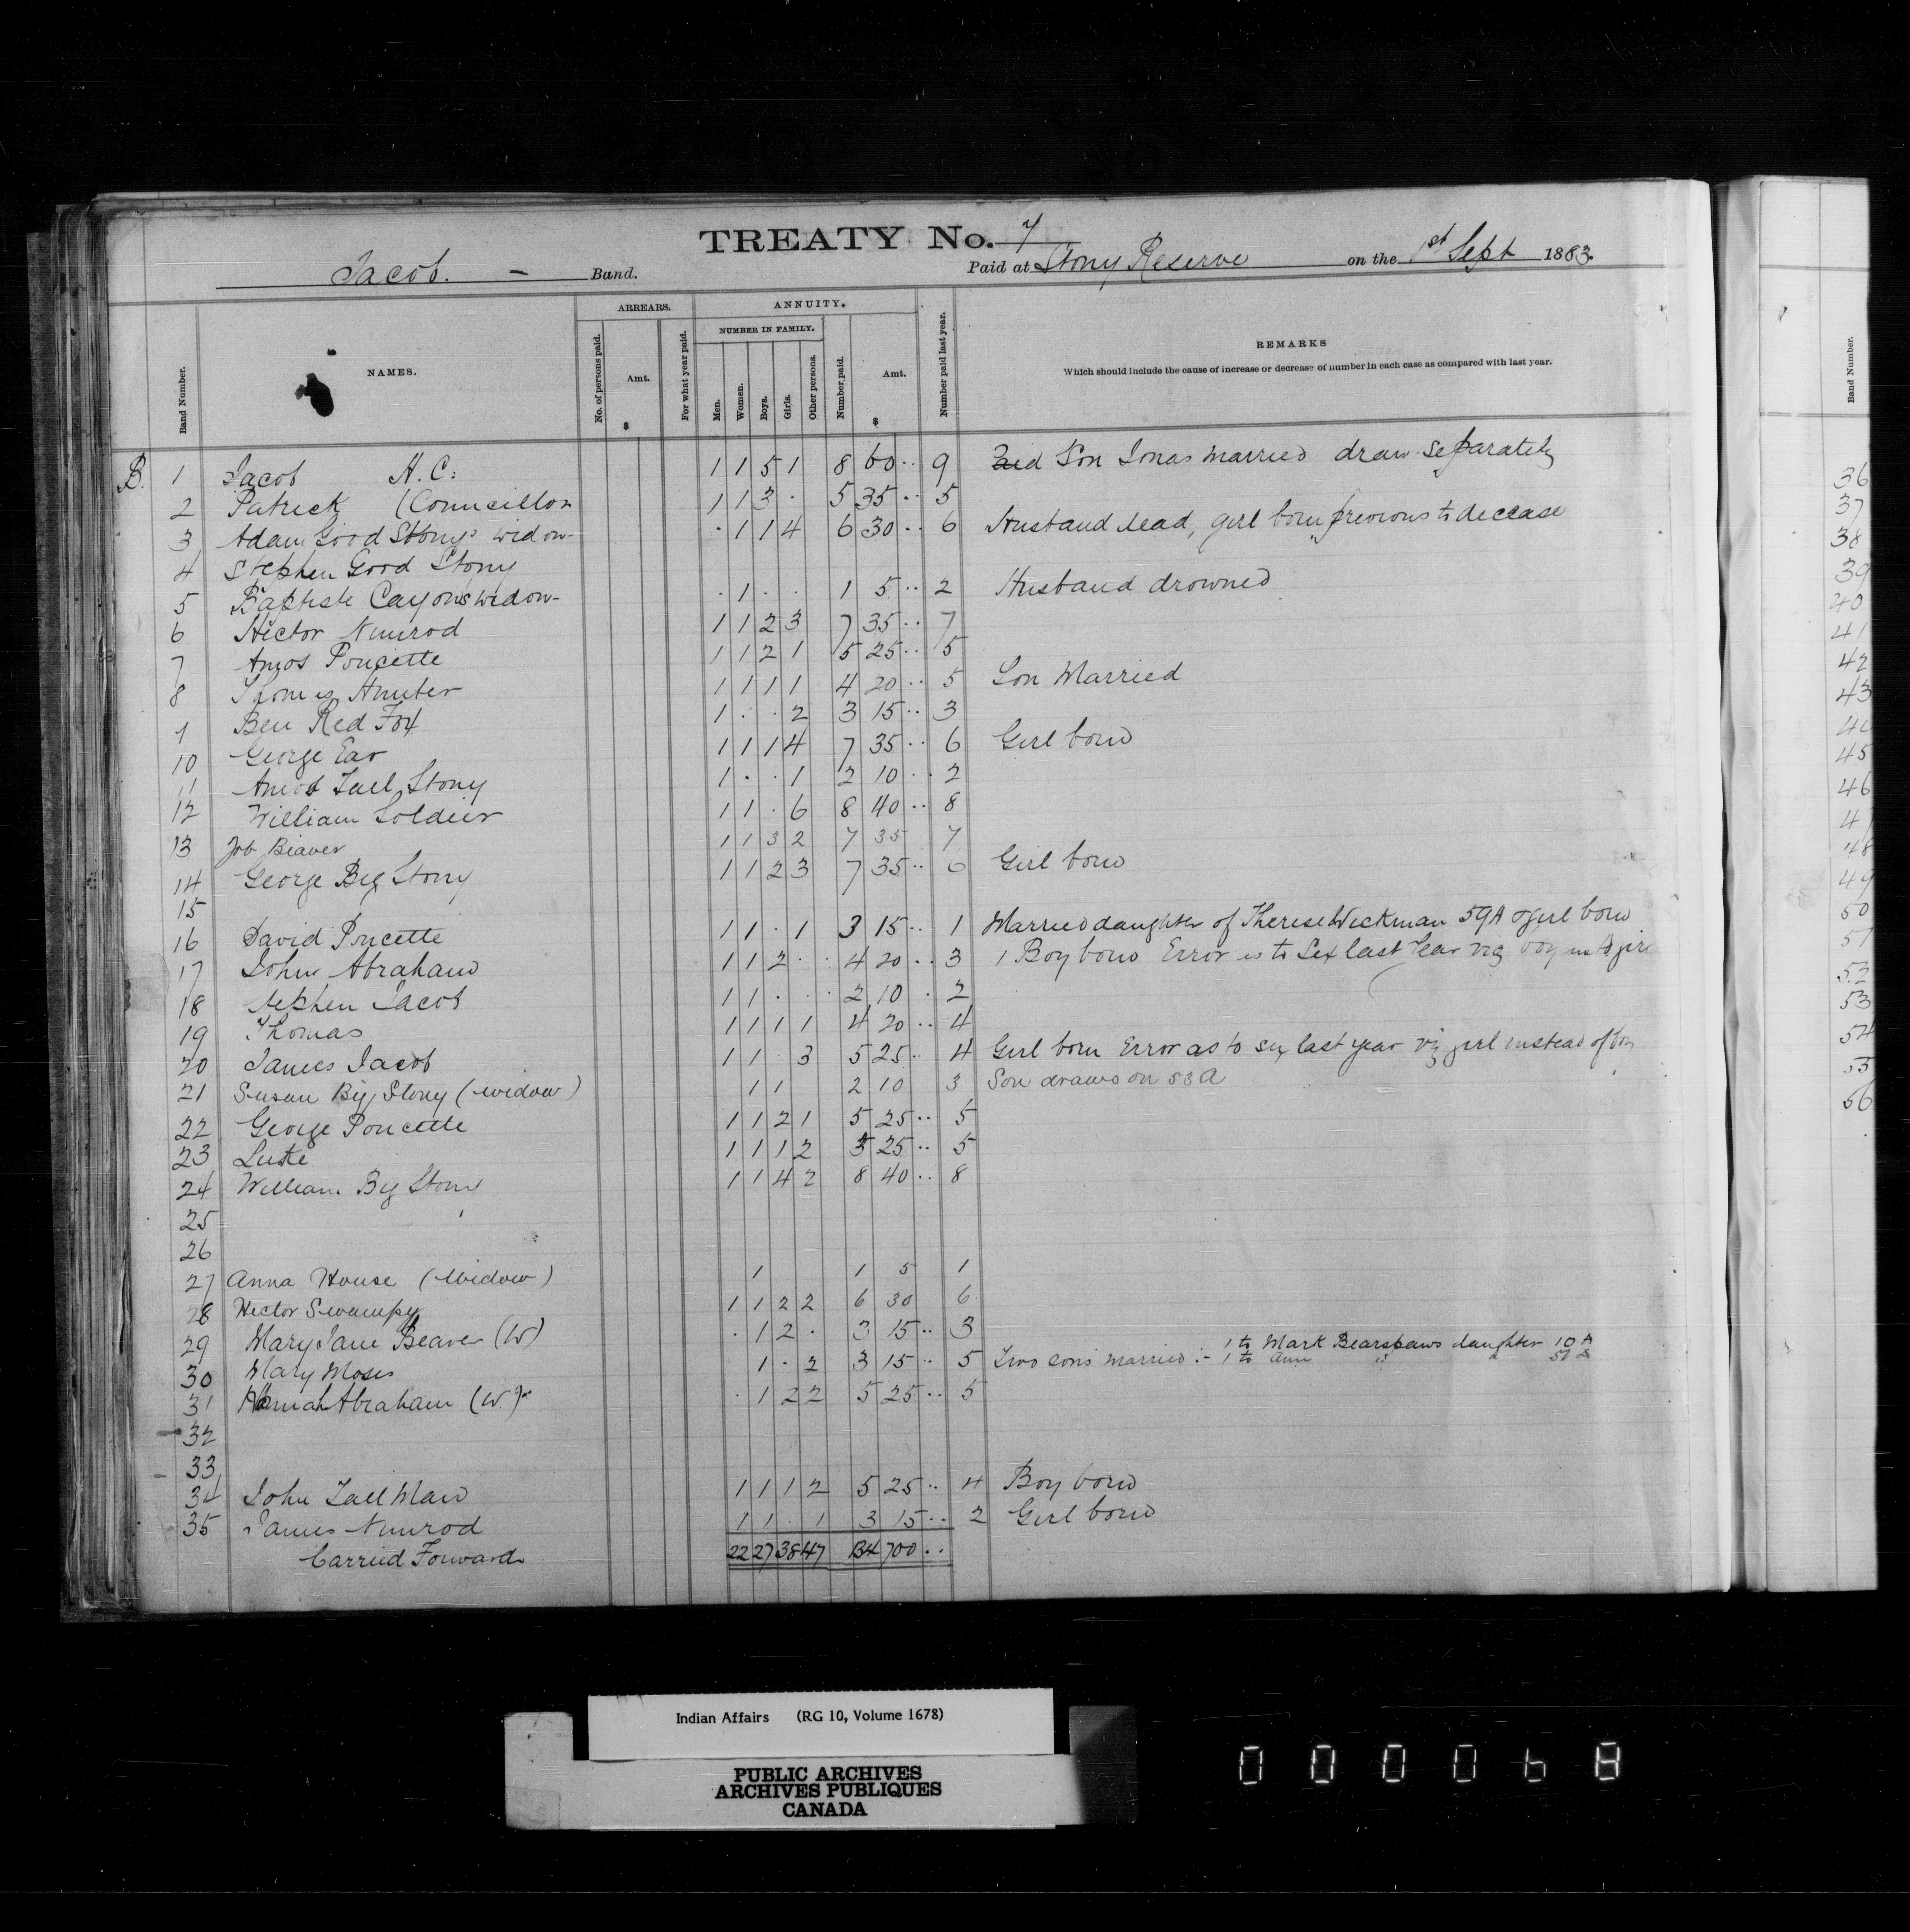 TREATY No. 7
Jacob. - Band. Paid at Stony Reserve on the 1st Sept 1883.
Band Number. NAMES. ARREARS. No. of persons paid. Amt. $ For what year paid. ANNUITY. NUMBER IN FAMILY. Men. Women. Boys. Girls. Other persons. Number paid. Amt. $ Number paid last year. REMARKS
Which should include the cause of increase or decrease of number in each case as compared with last year.
Band Number.
B. 1 Jacob H.C: 1 1 5 1 8 60 .. 9 Son Jonas married draw separately
2 Patrick (Councillor 1 1 3 . 5 35 .. 5
3 Adam Good Stony's widow - . 1 1 4 6 30 .. 6 Husband dead, girl born previous to decease
4 Stephen Good Stony
5 Baptiste Cayon's widow - . 1 . . 1 5 .. 2 Husband drowned
6 Hector Nimrod 1 1 2 3 7 35 .. 7
7 Amos Poucette 1 1 2 1 5 25 .. 5
8 Thomas Hunter 1 1 1 1 4 20 .. 5 Son Married
9 Ben Red Fox 1 . . 2 3 15 .. 3
10 George Ear 1 1 1 4 7 35 .. 6 Girl born
11 Amos Tall Stony 1 . . 1 2 10 .. 2
12 William Soldier 1 1 . 6 8 40 .. 8
13 Job Beaver 1 1 3 2 7 35 7
14 George Big Stony 1 1 2 3 7 35 .. 6 Girl born
15
16 David Poucette 1 1 . 1 3 15 .. 1 Married daughter of Therese Wickman 59A & girl born
17 John Abraham 1 1 2 . . 4 20 .. 3 1 Boy born Error as to Sex last Year viz boy
18 Stephen Jacob 1 1 . . . 2 10 . 2
19 Thomas 1 1 1 1 4 20 .. 4
20 James Jacob 1 1 . 3 5 25 .. 4 Girl born Error as to sex last year viz girl instead of boy
21 Susan Big Stony (widow) 1 1 2 10 3 Son draws on 53 A
22 George Poucette 1 1 2 1 5 25 .. 5
23 Luste 1 1 1 2 5 25 .. 5
24 William Big Stony 1 1 4 2 8 40 .. 8
25
26
27 Anna House (Widow) 1 1 5 1
28 Hector Swampy 1 1 2 2 6 30 6
29 Mary Jane Beaver (W) . 1 2 . 3 15 .. 3
30 Mary Moses 1 . 2 3 15 .. 5 Two sons married :- 1 to Mark Bearspaws daughter 10 A
1 to Ann " " 51
31 Hannah Abraham (W.) . 1 2 2 5 25 .. 5
32
33
34 John Tall Man 1 1 1 2 5 25 .. 4 Boy born
35 James Nimrod 1 1 . 1 3 15 .. 2 Girl born
Carried Forward 22 27 38 47 134 700 ..
36
37
38
39
40
41
42
43
45
46
48
49
50
51
52
53
54
55
56
Indian Affairs (RG 10, Volume 1678)
PUBLIC ARCHIVES
ARCHIVES PUBLIQUES
CANADA
000068